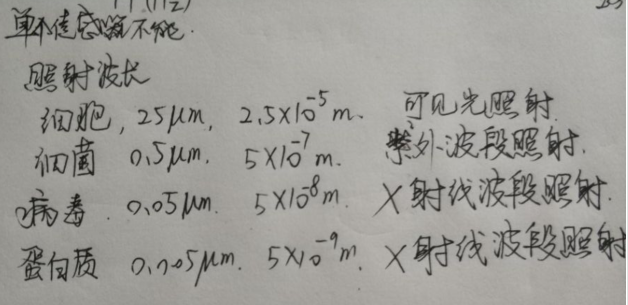 照射波长
细胞, 25μm, 2.5×10⁻⁵m. 可见光照射.
细菌 0.5μm. 5×10⁻⁷m. 紫外波段照射.
病毒. 0.05μm. 5×10⁻⁸m. X射线波段照射.
蛋白质 0.005μm. 5×10⁻⁹m. X射线波段照射